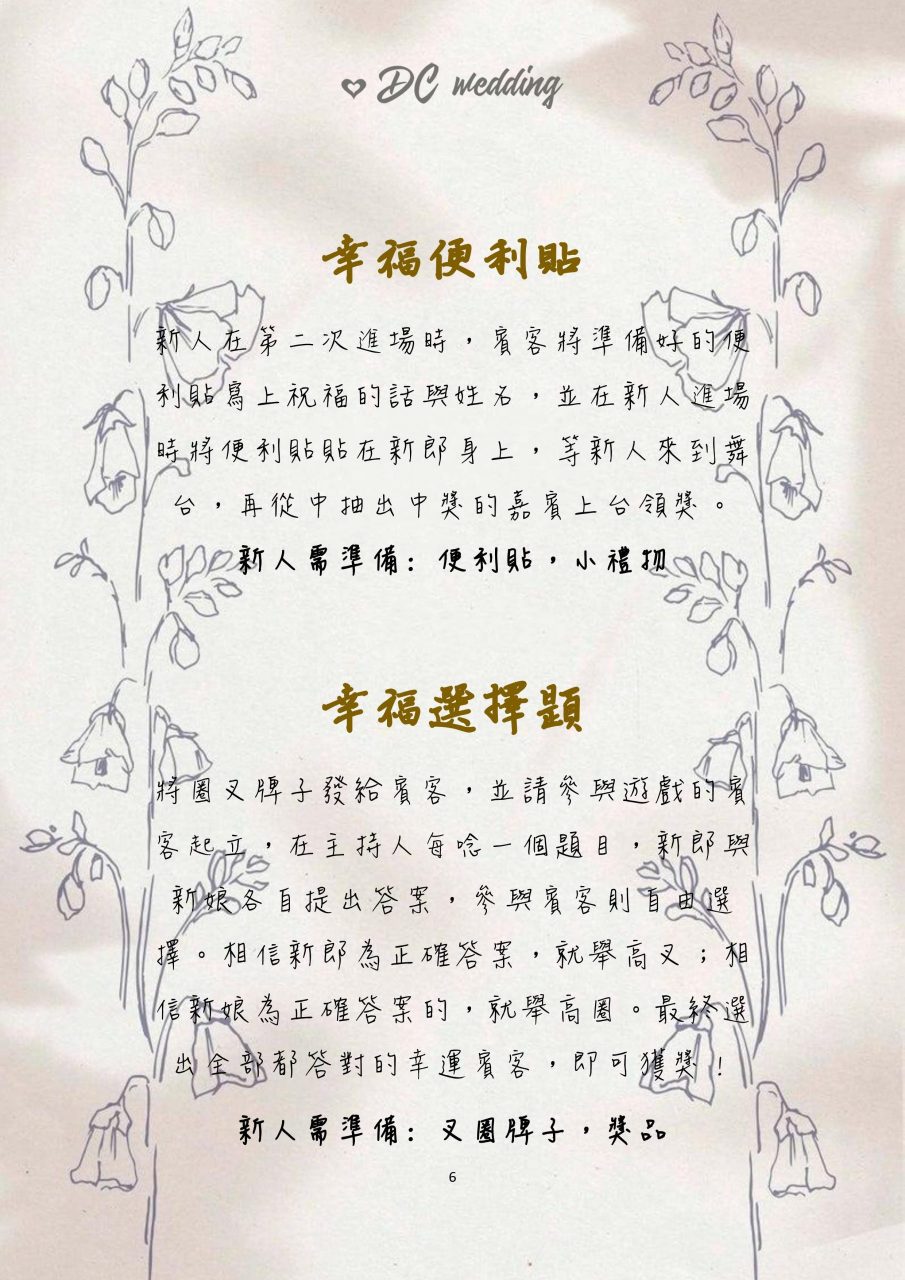 DC wedding
幸福便利貼
新人在第二次進場時，賓客將準備好的便
利貼寫上祝福的話與姓名，並在新人進場
時將便利貼貼在新郎身上，等新人來到舞
台，再從中抽出中獎的嘉賓上台領獎。
新人需準備: 便利貼，小禮物
幸福選擇題
將圈叉牌子發給賓客，並請參與遊戲的賓
客起立，在主持人每唸一個題目，新郎與
新娘各自提出答案，參與賓客則自由選
擇。相信新郎為正確答案，就舉高叉；相
信新娘為正確答案的，就舉高圈。最終選
出全部都答對的幸運賓客，即可獲獎！
新人需準備: 叉圈牌子，獎品
6